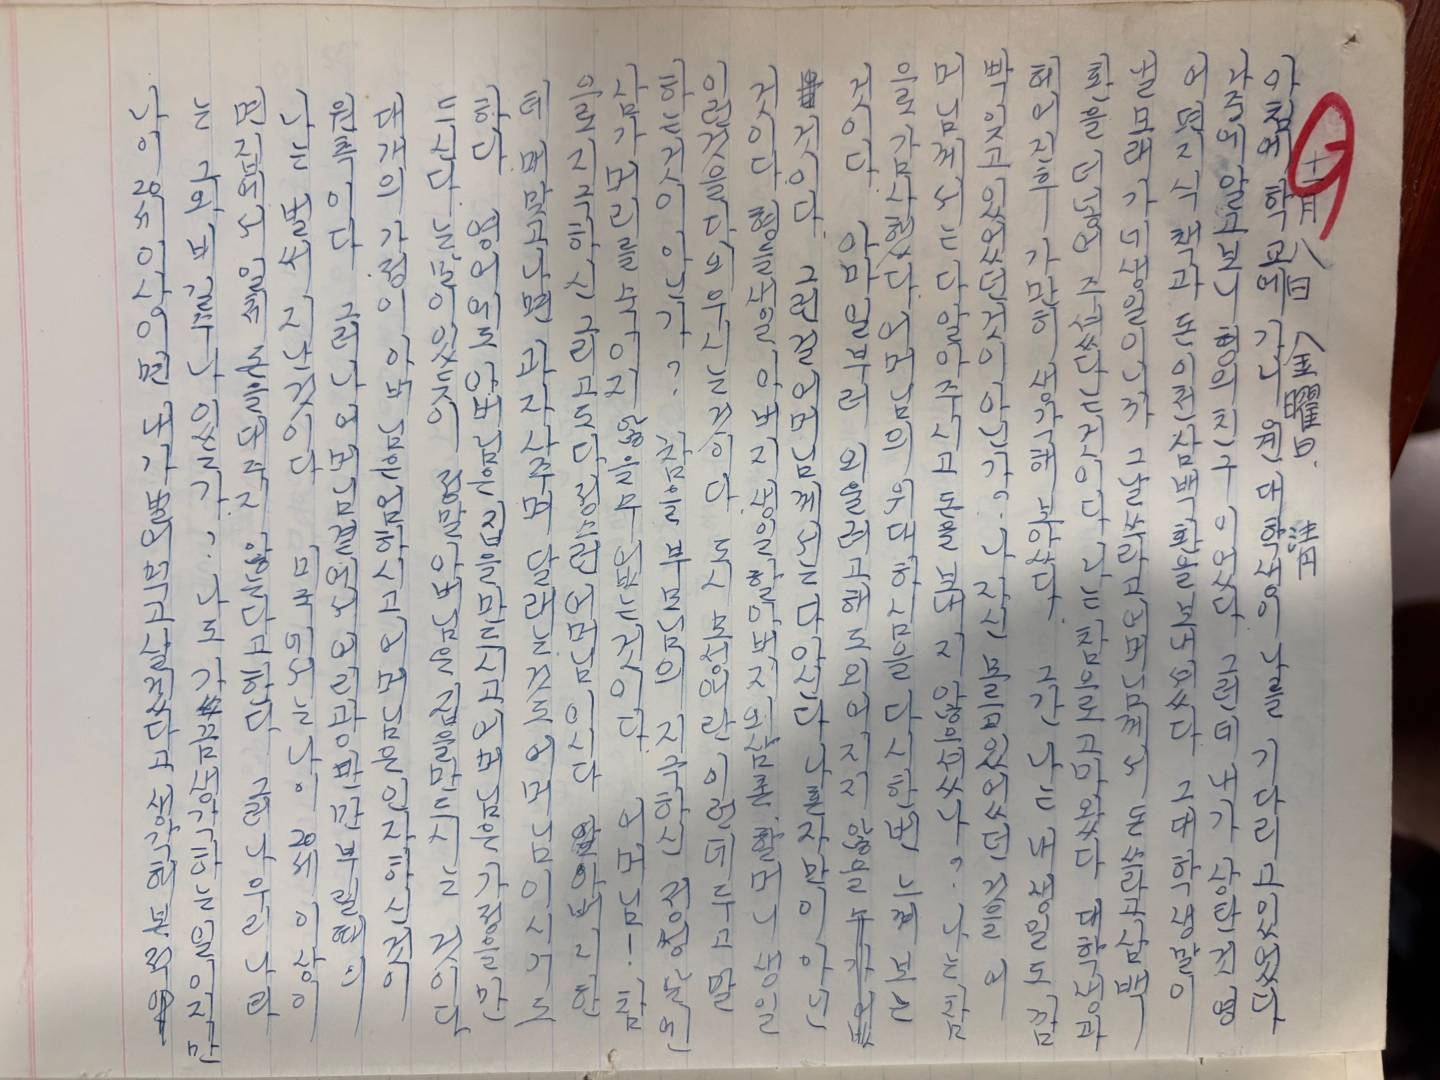 9
十二月八日 金曜日. 清
아침에 학교에 가니 웬 대학생이 나를 기다리고 있었다
나중에 알고보니 형의 친구 이었다. 그런데 내가 상탄것 영
어 면지식 책과 돈 이천삼백환을 보내셨다. 그 대학생 말이
낼모래가 네 생일이니까 그날 쓰라고 어머님께서 돈 쓰라고 삼백
환을 더 넣어 주셨다는 것이다. 나는 참으로 고마왔다 대학생과
헤어진후 가만히 생각해 보았다. 그간 나는 내 생일도 깜
빡 잊고 있었던 것이 아닌가? 나 자신 모르고 있었던 것을 어
머님께서는 다 알아주시고 돈을 보내지 않으셨나? 나는 참
으로 감사했다 어머님의 위대하심을 다시한번 느껴 보는
것이다 아마 일부러 외울려고해도 외어지지 않을 수가 없
것이다. 그런걸 어머님께서는 다 아신다 나 혼자만이 아닌
것이다 형들 생일 아버지 생일 할아버지 외삼촌 할머니 생일
이런것을 다 외우시는 것이다 도시 모성애란 이런데 두고 말
하는것이 아닌가? 참을 부모님의 지극하신 정성엔
삼가 머리를 숙이지 않을수 없는 것이다. 어머님! 참
으로 지극하신 그리고도 다정스런 어머님이시다 아버지한
테 매맞고나면 과자 사주며 달래는것도 어머님이시기도
하다 영어에도 아버님은 집을 만드시고 어머님은 가정을 만
드신다는 말이 있듯이 정말 아버님은 집을 만드시는 것이다
대개의 가정이 아버님은 엄하시고 어머님은 인자하신것이
원측이다 그러나 어머님 곁에서 어리광만 부릴때
나는 벌써 지난것이다 미국에서는 나이 20세 이상이
면 집에서 일체 돈을 대주지 않는다고한다 그러나 우리나라
는 그와 비길수나 있는가? 나도 가끔 생각하는 일이지만
나이 20세이상이면 내가 벌어먹고 살겠다고 생각해 본